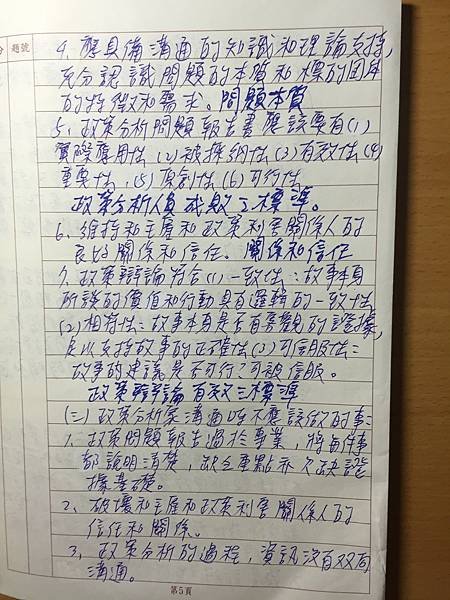 分 題號
4. 應具備溝通的知識和理論支持,
充分認識問題的本質和標的團体
的特徵和需求。問題本質
5、政策分析問題報告書應該要有(1)
實際應用性 (2)被採納性(3)有效性(4)
重要性、(5)原創性(6)可行性
政策分析人員成敗之標準。
6、維持和主雇和政策利害關係人的
良好關係和信任。關係和信任
7、政策辯論符合(1)一致性：故事本身
所談的價值和行動具有邏輯的一致性
(2)相符性：故事本身是否有客觀的證據,
足以支持故事的正確性(3)可信服性：
故事的建議是否可行?可被信服。
政策辯論有效三標準
(三)政策分析家溝通時不應該做的事：
1、政策問題報告過於專業，將每件事
都說明清楚，缺乏重點亦欠缺證
據基礎。
2、破壞和主雇和政策利害關係人的
信任和關係。
3、政策分析的過程，資訊沒有双向
溝通。
第5頁